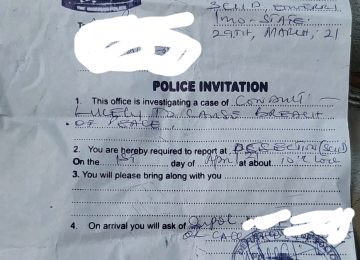 SCIID, OWERRI
IMO-STATE.
29TH, MARCH, 21
To
POLICE INVITATION
1. This office is investigating a case of CONDUCT
LIKELY TO CAUSE BREACH
OF PEACE.
2. You are hereby required to report at (SCIID)
On the 1st day of April at about 10'clock
3. You will please bring along with you
4. On arrival you will ask of